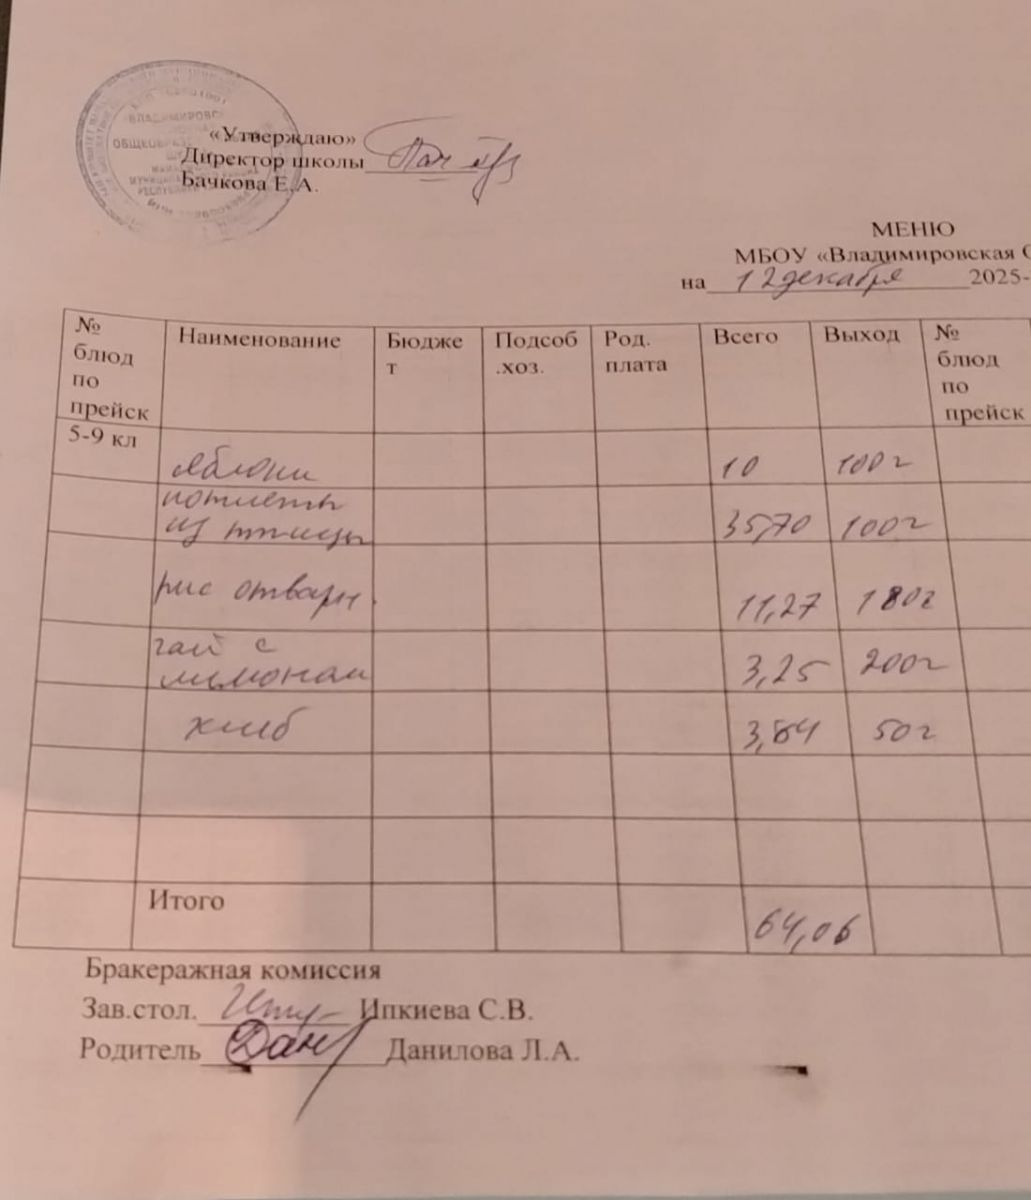 «Утверждаю»
Директор школы
Бачкова Е.А.
МЕНЮ
МБОУ «Владимировская С
на 12 декабря 2025-
№ блюд по прейск Наименование Бюдже т Подсоб .хоз. Род. плата Всего Выход № блюд по прейск
5-9 кл яблоки 10 100г
котлеты из птицы 35,70 100г
рис отварн. 11,27 180г
чай с лимоном 3,25 200г
хлеб 3,84 50г
Итого 64,06
Бракеражная комиссия
Зав.стол. Ипкиева С.В.
Родитель Данилова Л.А.